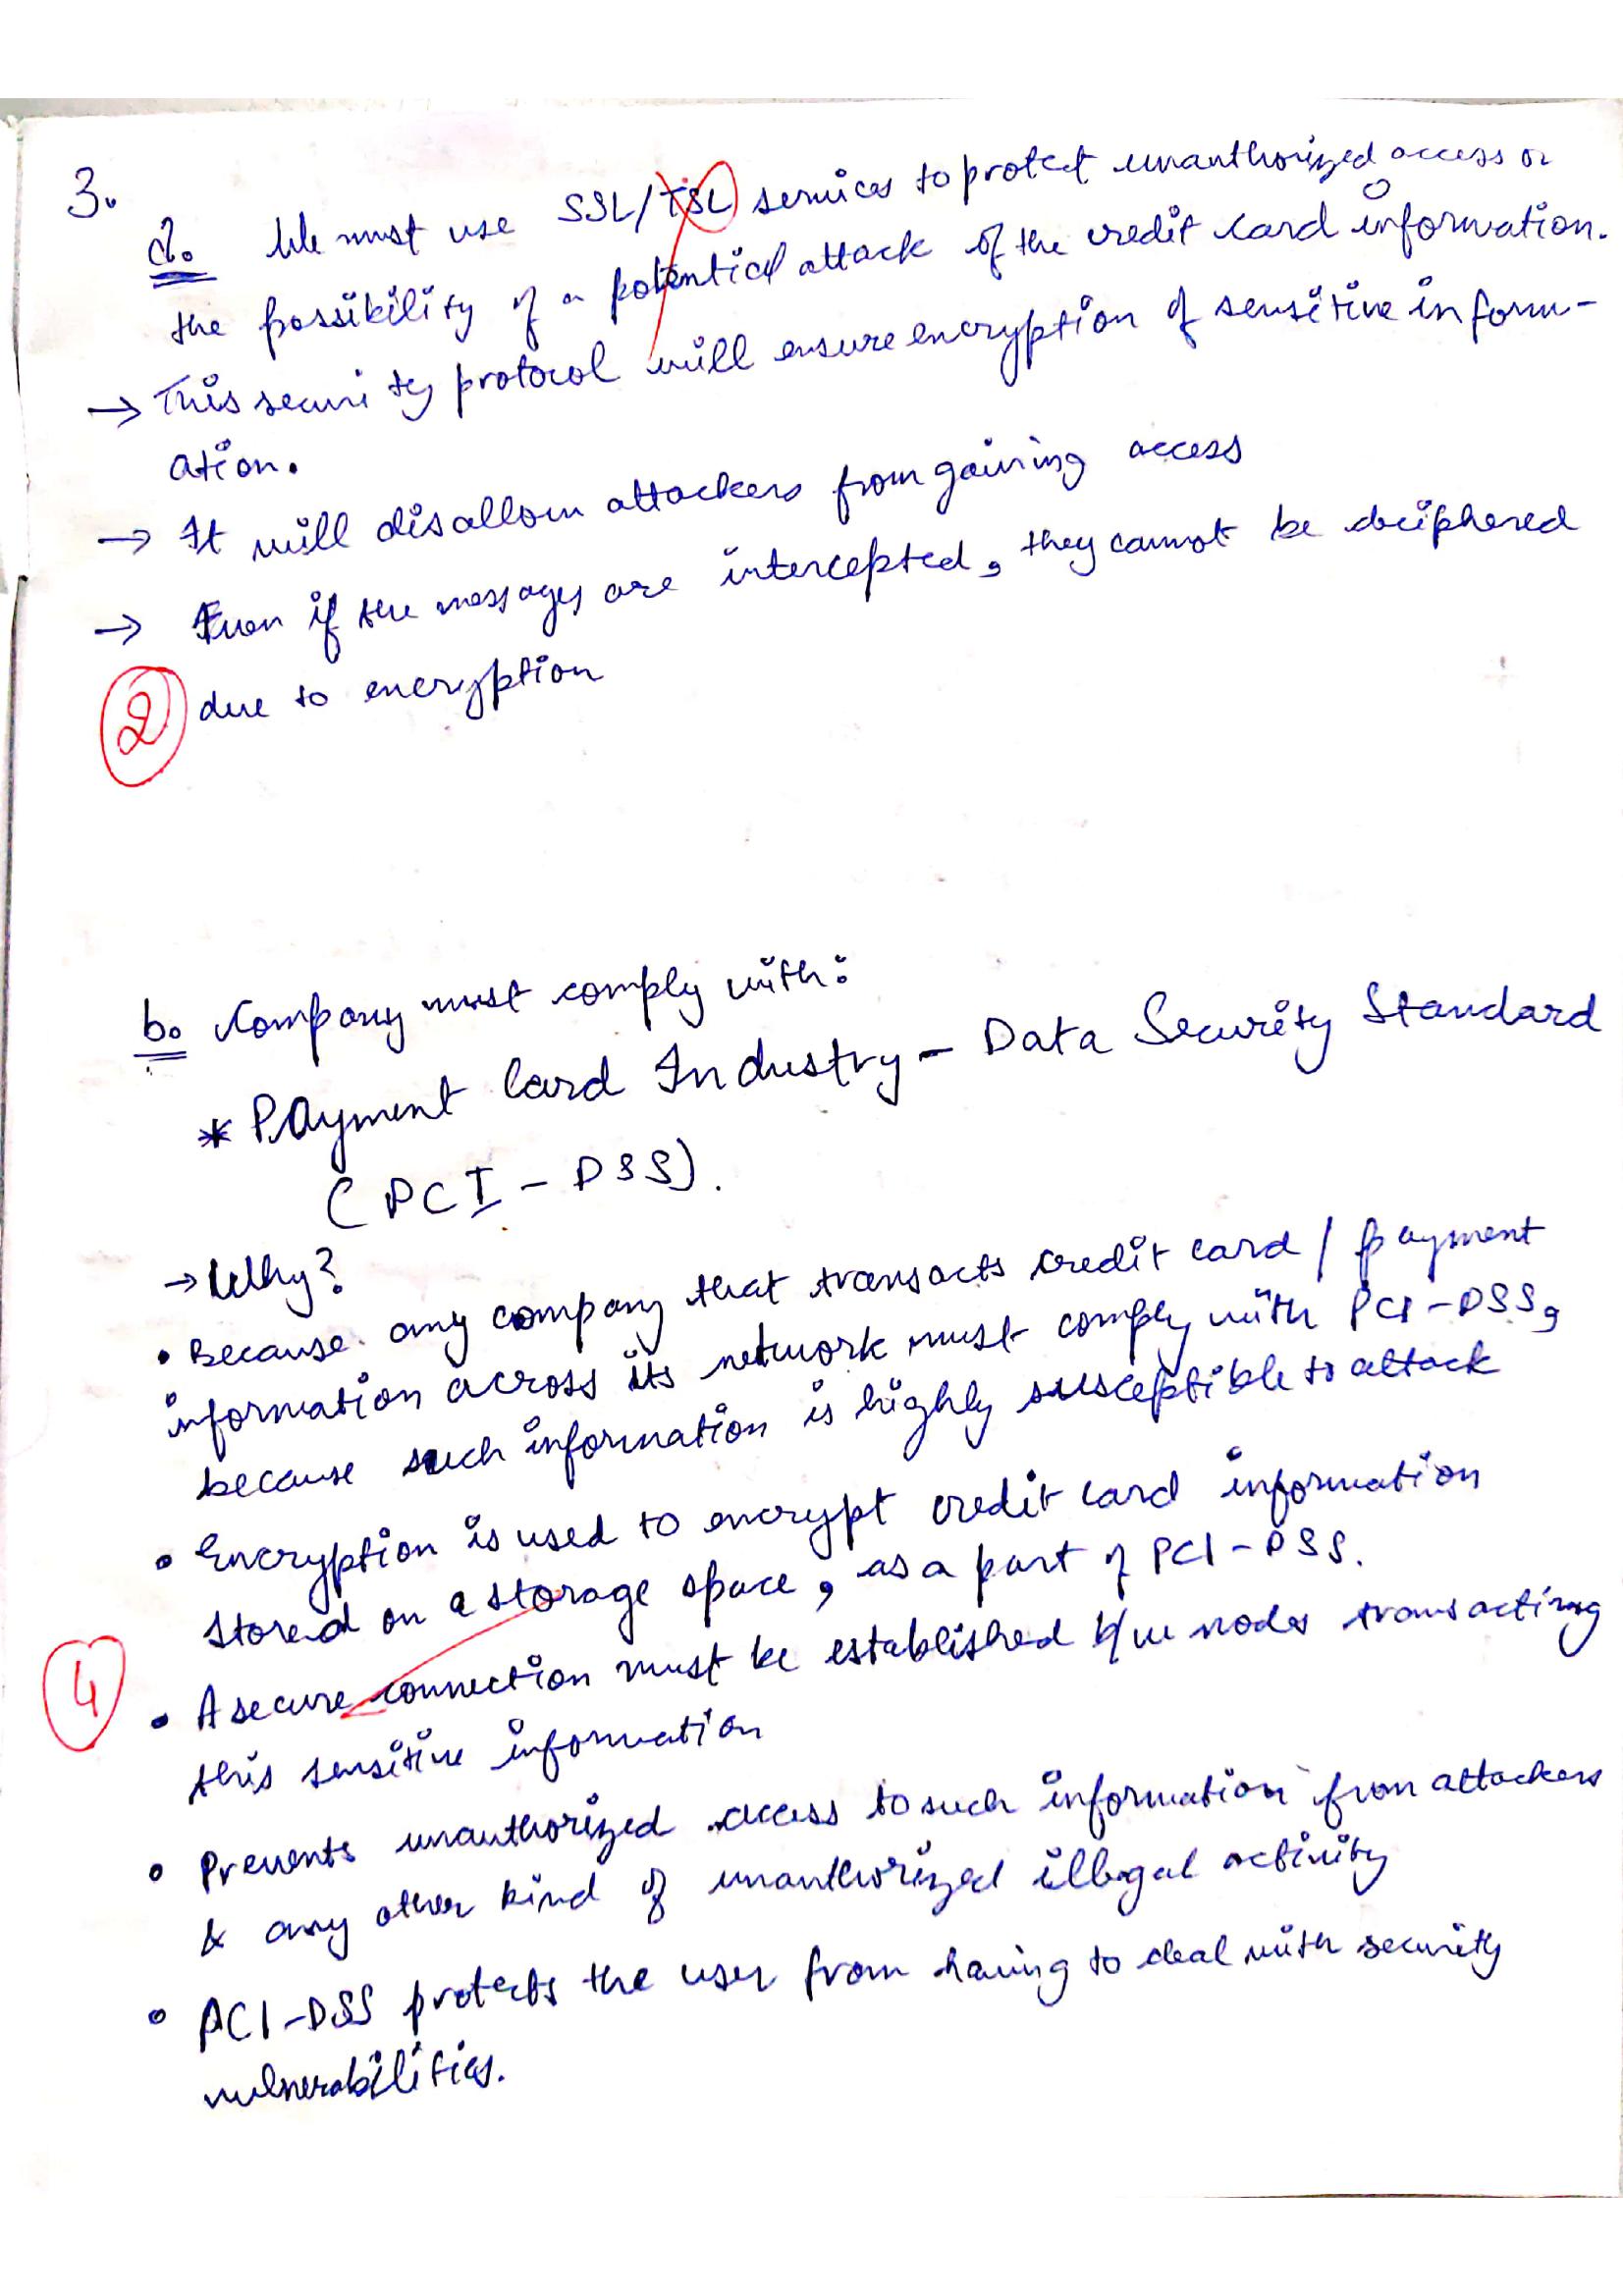 3.
a. We must use SSL/TSL services to protect unauthorized access or
the possibility of a potential attack of the credit card information.
→ This security protocol will ensure encryption of sensitive inform-
ation.
→ It will disallow attackers from gaining access
→ Even if the messages are intercepted, they cannot be deciphered
due to encryption
2
b. Company must comply with:
* Payment Card Industry - Data Security Standard
(PCI - DSS).
→ Why?
• Because any company that transacts credit card / payment
information across its network must comply with PCI-DSS,
because such information is highly susceptible to attack
• Encryption is used to encrypt credit card information
stored on a storage space, as a part of PCI-DSS.
4
• A secure connection must be established b/w nodes transacting
this sensitive information
• Prevents unauthorized access to such information from attackers
& any other kind of unauthorized illegal activity
• PCI-DSS protects the user from having to deal with security
vulnerabilities.